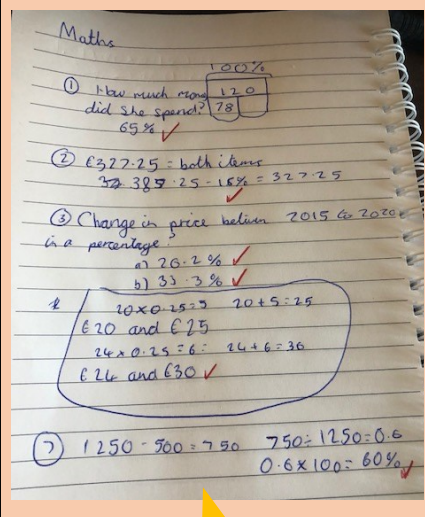 Maths
100%
① How much money 120
did she spend? 78
65% ✓
② €327.25 = both items
385.25 - 15% = 327.25
✓
③ Change in price between 2015 to 2020
in a percentage?
a) 26.2% ✓
b) 33.3% ✓
* 20 x 0.25 = 5 20 + 5 = 25
€20 and €25
24 x 0.25 = 6 = 24 + 6 = 30
€24 and €30 ✓
⑦ 1250 - 500 = 750 750 ÷ 1250 = 0.6
0.6 x 100 = 60% ✓